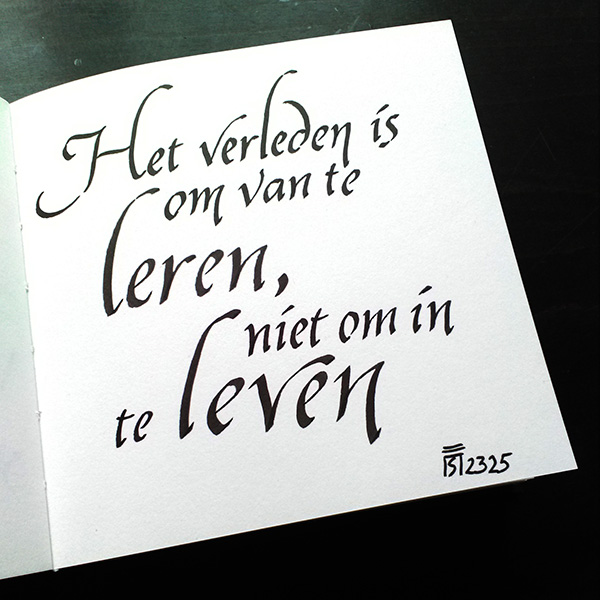 Het verleden is
om van te
leren,
niet om in
te leven
2325